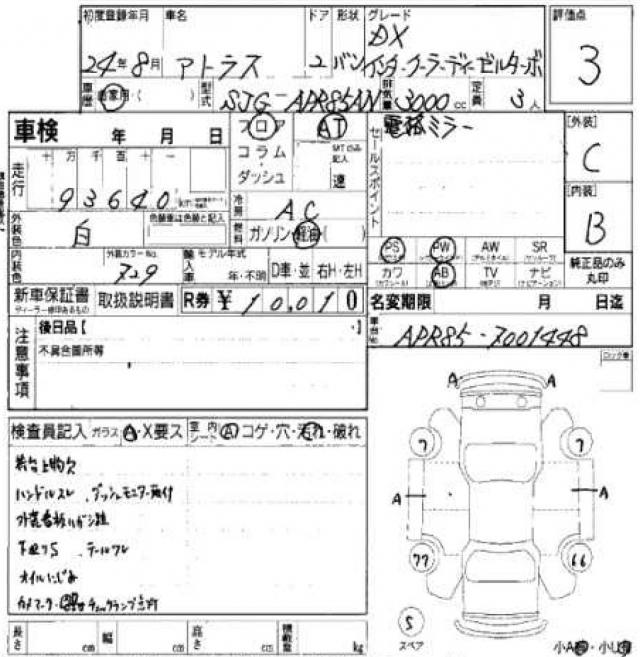 初度登録年月 車名 ドア 形状 グレード 評価点
DX
24年8月 アトラス 2 バン インタークーラーディーゼルターボ 3
車歴 自家用・( ) 型式 SJG-APR85AN 排気量 3000cc 定員 3人
車検 年 月 日 フロア AT セールスポイント 電格ミラー [外装]
コラム MTのみ記入 C
走行 十 万 千 百 十 一 ダッシュ 速
93640 冷房 AC [内装]
外装色 白 色替車は色替と記入 燃料 ガソリン・軽油・( ) B
PS PW AW SR
内装色 外装カラーNo. 729 輸入車 モデル年式 年・不明 D車・並 右H・左H カワ AB TV ナビ 純正品のみ丸印
新車保証書 取扱説明書 R券 ¥10,010 名変期限 月 日迄
ディーラー捺印あるもの
注意事項 後日品【 】 車台No. APR85-7001448
不具合箇所等
検査員記入 ガラス A・X要ス 室内 シート A コゲ・穴・汚れ・破れ
A A
7 7
A A
77 66
ハンドルスレ
下廻りS
オイルにじみ
S
スペア
長さ cm 幅 cm 高さ cm 積載量 kg